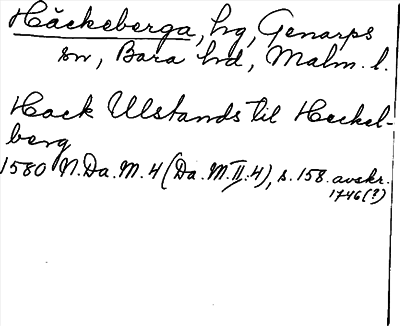 Häckeberga, hg, Genarps
sn, Bara hd, Malm. l.
Hack Ulstands til Heckel-
berg
1580 N.Da.M. 4 (Da.M.II:4), s. 158. avskr.
1746(?)